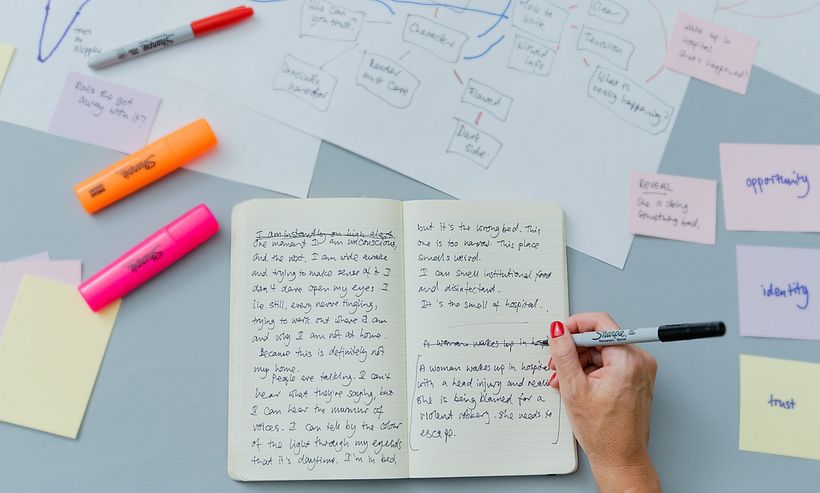 Who can
you trust?
Character
How to
write
Withold
info
Clear
Tension
What is
really happening?
Unreliable
narrator
Reader
must care
Flawed
Dark
side
Wake up in
hospital
What's happened?
Sharpie
Does she get
away with it?
Sharpie
Sharpie
REVEAL
She is doing
something bad.
opportunity
identity
trust
I am instantly on high alert.
One moment I am unconscious,
and the next, I am wide awake
and trying to make sense of it I
don't dare open my eyes. I
lie still, every nerve tingling,
trying to work out where I am
and why I am not at home.
Because this is definitely not
my home.
People are talking. I can't
hear what they're saying, but
I can hear the murmur of
voices. I can tell by the colour
of the light through my eyelids
that it's daytime. I'm in bed,
but it's the wrong bed. This
one is too narrow. This place
smells weird.
I can smell institutional food
and disinfectant.
It's the smell of hospital...
A woman wakes up in
A woman wakes up in hospital
with a head injury and
she is being blamed for a
violent robbery. She needs to
escape.
Sharpie